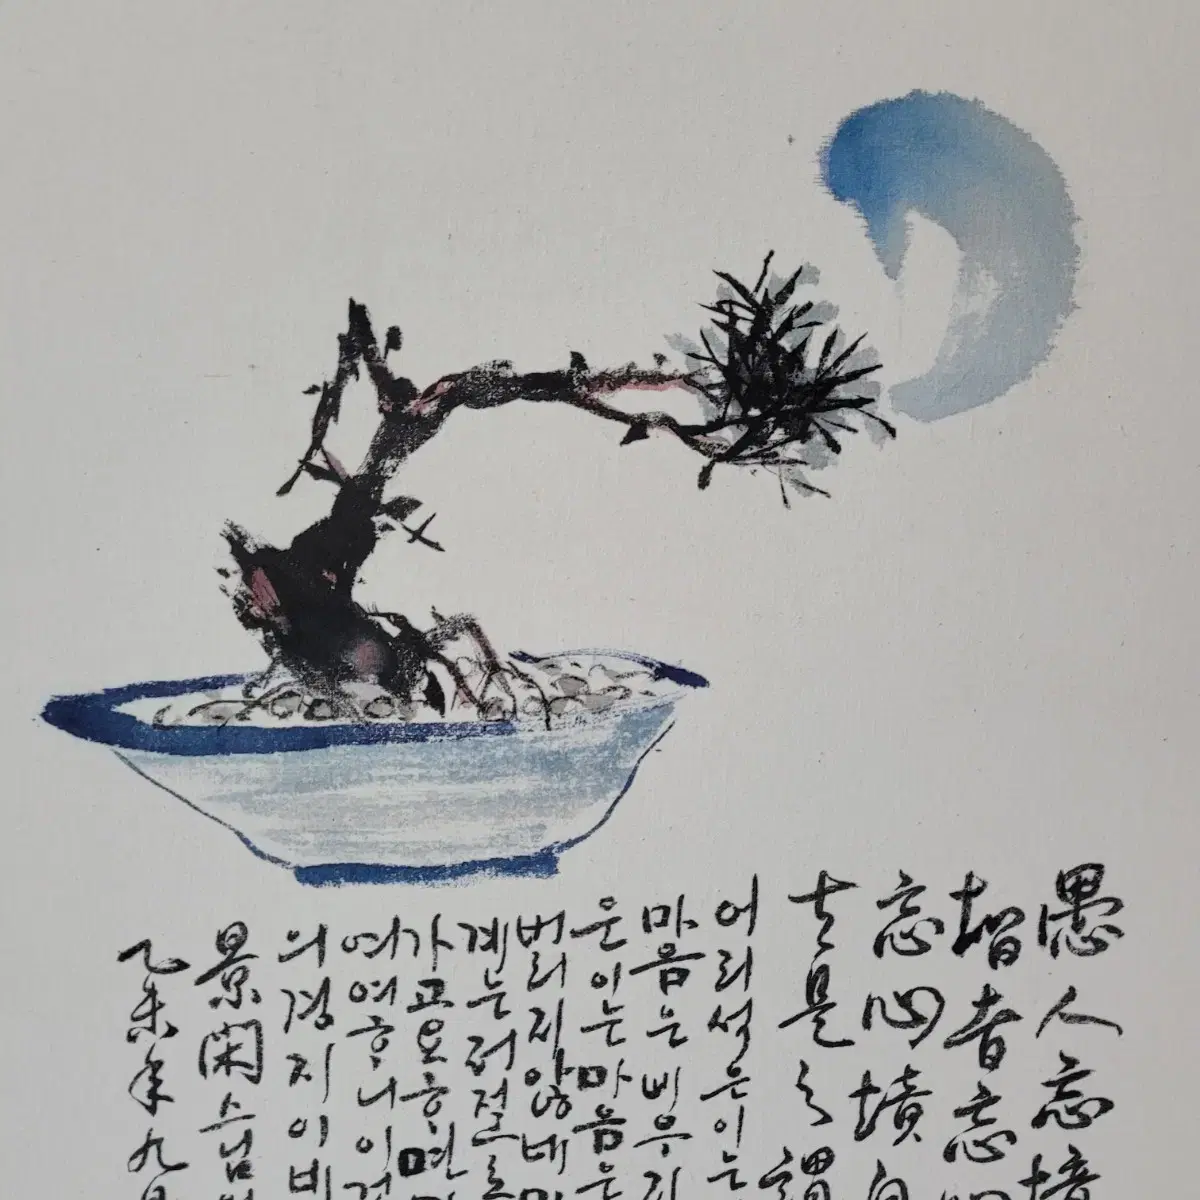 愚人忘境
智者忘心
忘心境自
夫是之謂
어리석은이는
마음은비우지
운이는마음은
버리지않네
계는저절로
가고요하면
여여하니이것
의경지이
景閑스님
乙未年九月